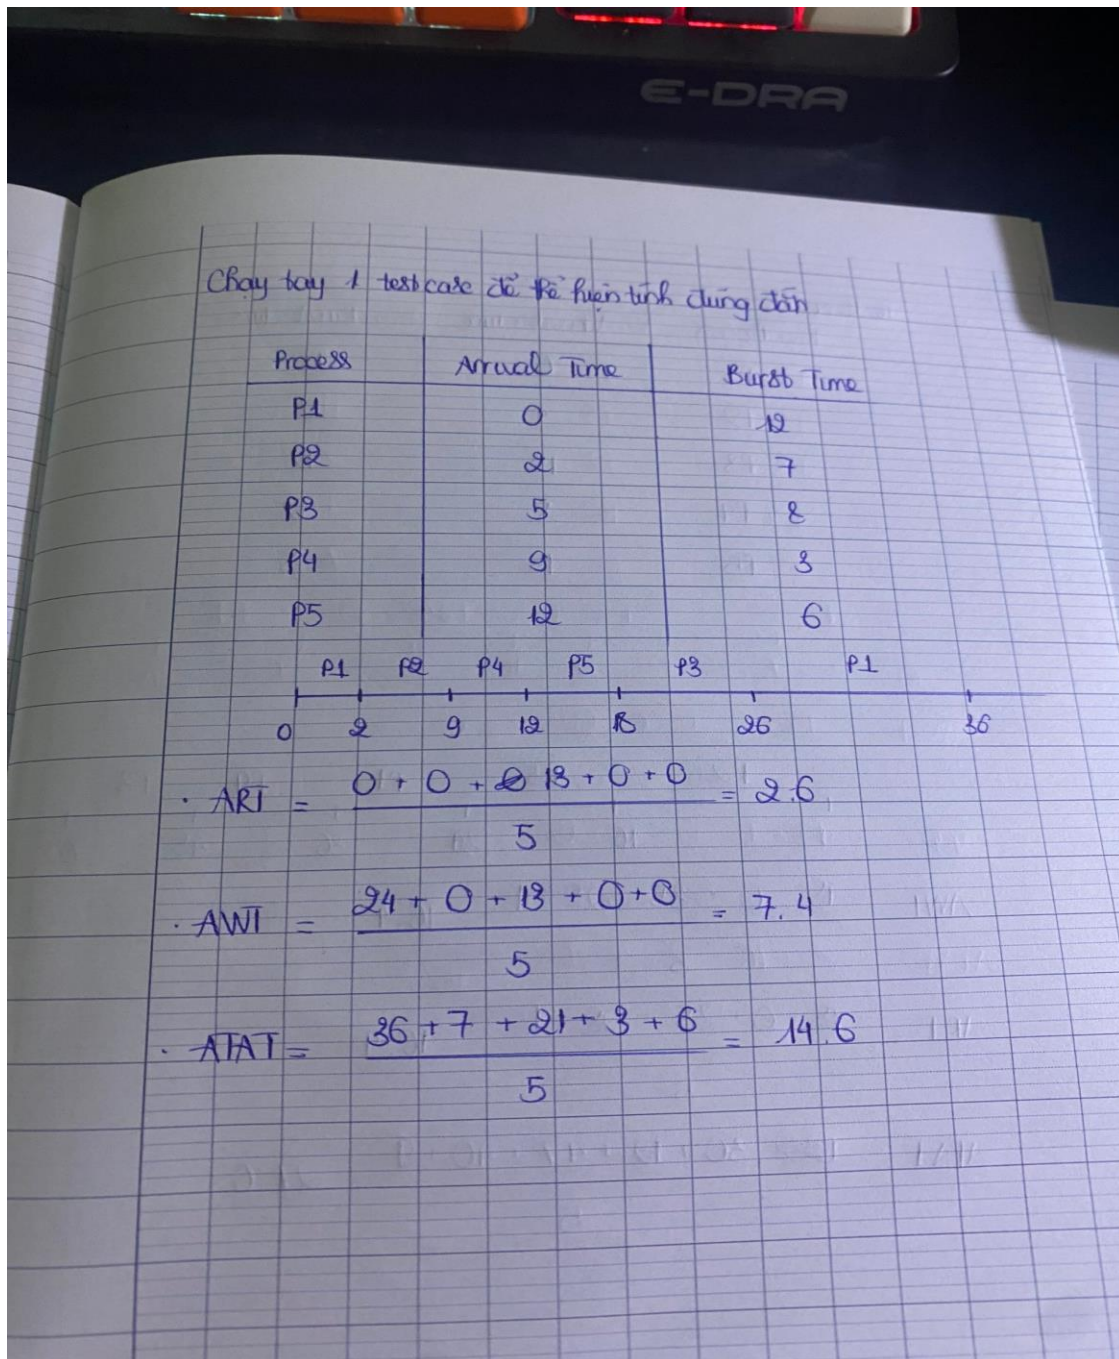 E-DRA
Chạy tay 1 testcase để thể hiện tính đúng đắn
Process Arrival Time Burst Time
P1 0 12
P2 2 7
P3 5 8
P4 9 3
P5 12 6
P1 P2 P4 P5 P3 P1
0 2 9 12 18 26 36
0 + 0 + 13 + 0 + 0
· ART = = 2.6
5
24 + 0 + 13 + 0 + 0
· AWT = = 7.4
5
36 + 7 + 21 + 3 + 6
· ATAT = = 14.6
5